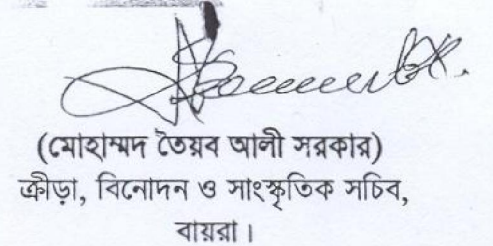 (মোহাম্মদ তৈয়ব আলী সরকার)
ক্রীড়া, বিনোদন ও সাংস্কৃতিক সচিব,
বায়রা।